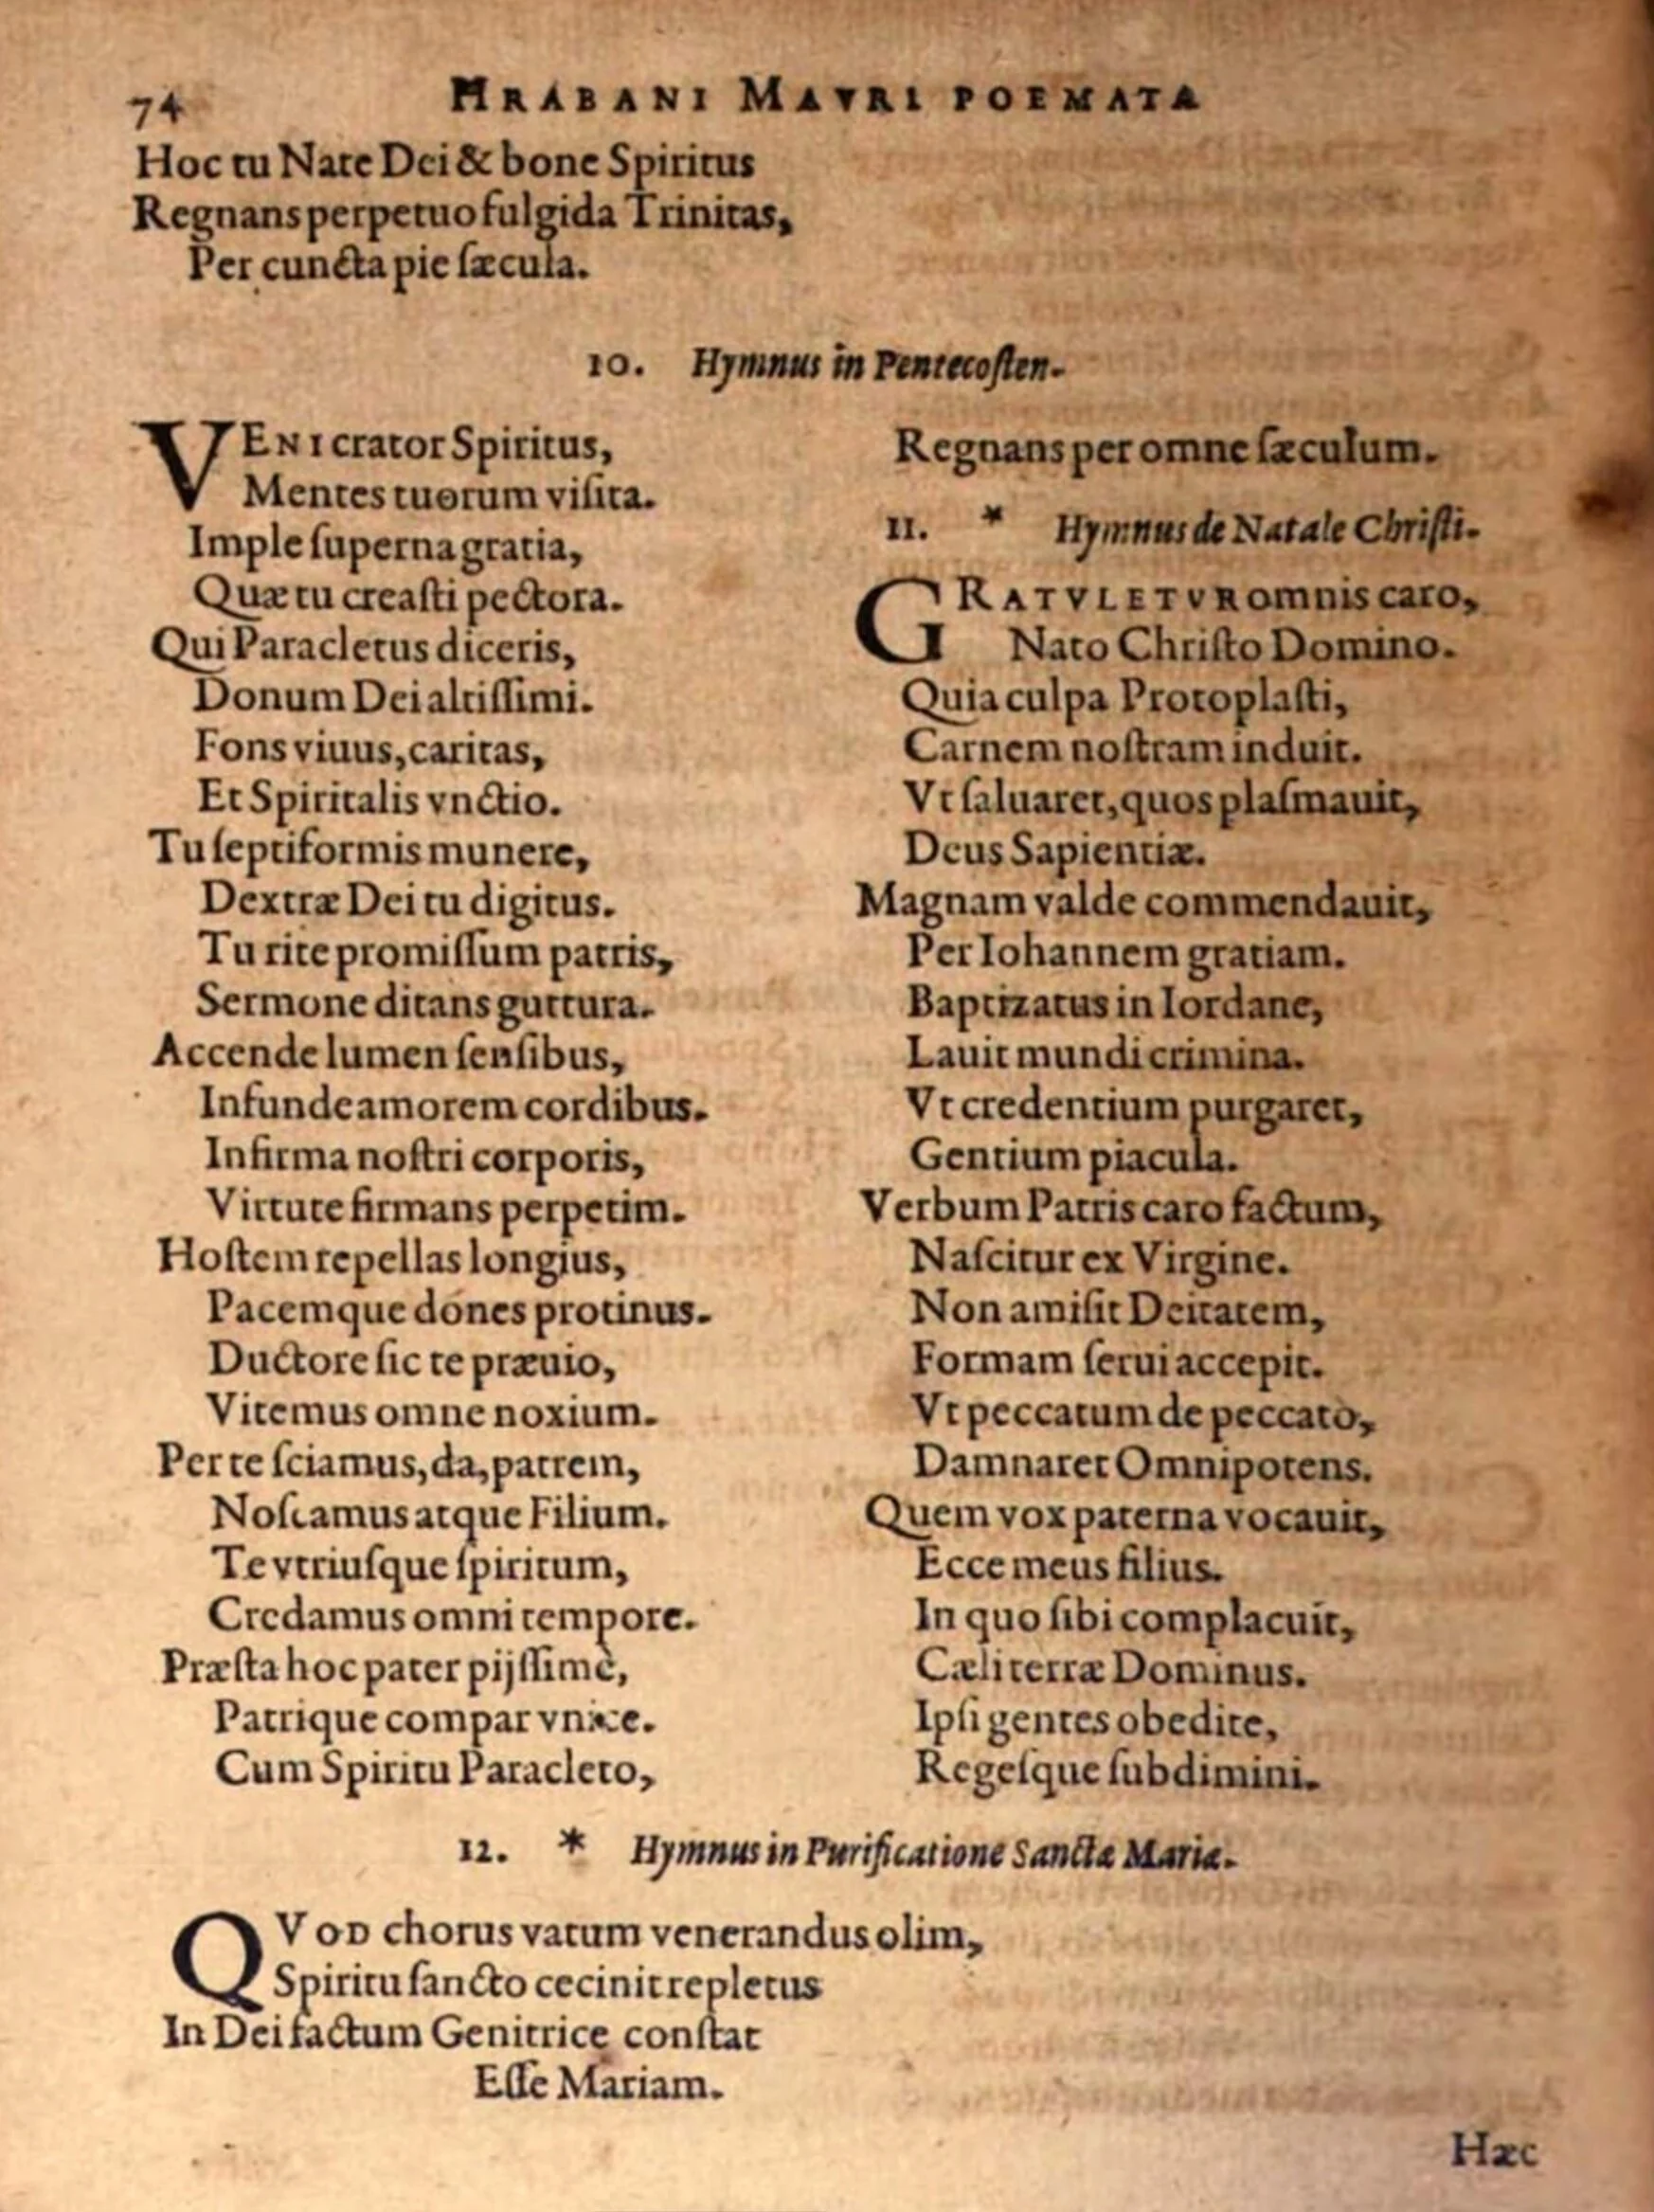 74
HRABANI MAVRI POEMATA
Hoc tu Nate Dei & bone Spiritus
Regnans perpetuo fulgida Trinitas,
Per cuncta pie ſæcula.
10. Hymnus in Pentecoſten.
VENI crator Spiritus,
Mentes tuorum viſita.
Imple ſuperna gratia,
Quæ tu creaſti pectora.
Qui Paracletus diceris,
Donum Dei altiſſimi.
Fons viuus, caritas,
Et Spiritalis vnctio.
Tu ſeptiformis munere,
Dextræ Dei tu digitus.
Tu rite promiſſum patris,
Sermone ditans guttura.
Accende lumen ſenſibus,
Infunde amorem cordibus.
Infirma noſtri corporis,
Virtute firmans perpetim.
Hoſtem repellas longius,
Pacemque dones protinus.
Ductore ſic te præuio,
Vitemus omne noxium.
Per te ſciamus, da, patrem,
Noſcamus atque Filium.
Te vtriuſque ſpiritum,
Credamus omni tempore.
Præſta hoc pater pijſſimè,
Patrique compar vnice.
Cum Spiritu Paracleto,
Regnans per omne ſæculum.
11. * Hymnus de Natale Chriſti.
GRATVLETVR omnis caro,
Nato Chriſto Domino.
Quia culpa Protoplaſti,
Carnem noſtram induit.
Vt ſaluaret, quos plaſmauit,
Deus Sapientiæ.
Magnam valde commendauit,
Per Iohannem gratiam.
Baptizatus in Iordane,
Lauit mundi crimina.
Vt credentium purgaret,
Gentium piacula.
Verbum Patris caro factum,
Naſcitur ex Virgine.
Non amiſit Deitatem,
Formam ſerui accepit.
Vt peccatum de peccato,
Damnaret Omnipotens.
Quem vox paterna vocauit,
Ecce meus filius.
In quo ſibi complacuit,
Cæli terræ Dominus.
Ipſi gentes obedite,
Regeſque ſubdimini.
12. * Hymnus in Purificatione Sanctæ Mariæ.
QVOD chorus vatum venerandus olim,
Spiritu ſancto cecinit repletus
In Dei factum Genitrice conſtat
Eſſe Mariam.
Hæc